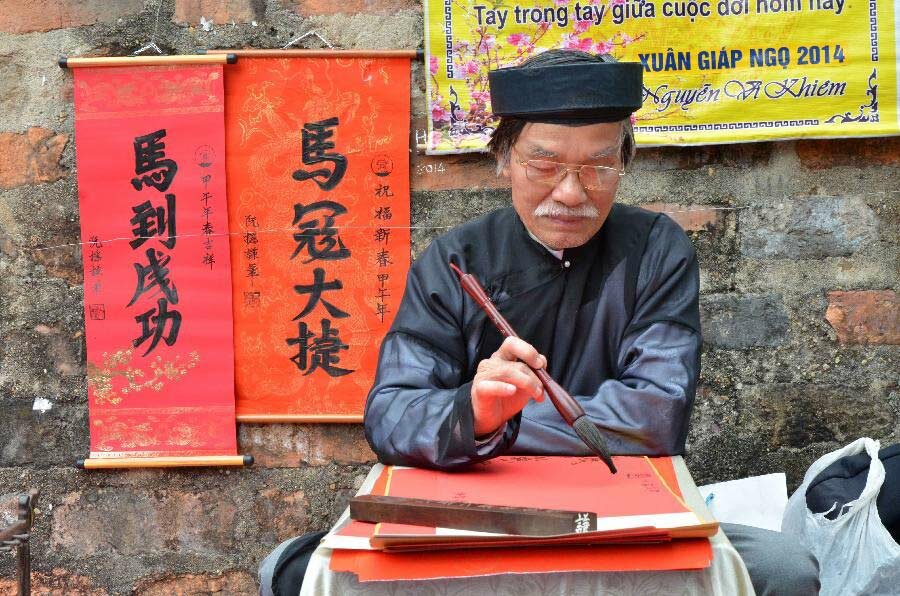 馬到成功
甲午年春吉祥
馬冠大捷
祝福新春甲午年
Tay trong tay giữa cuộc đời hôm nay
XUÂN GIÁP NGỌ 2014
Nguyễn Vĩ Khiêm